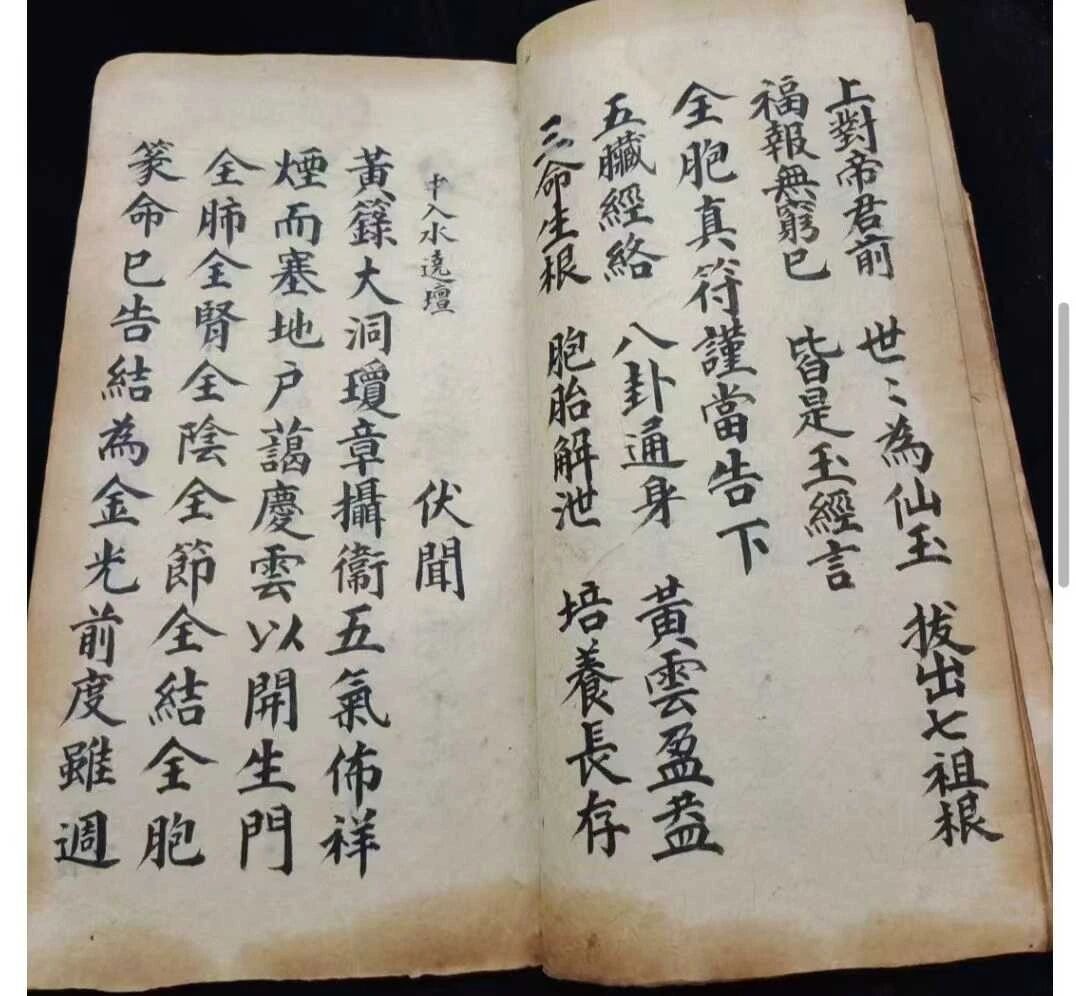 上對帝君前 世〻為仙玉 拔出七祖根
福報無窮已 皆是玉經言
全胞真符謹當告下
五臟經絡 八卦通身 黃雲盈益
三命生根 胞胎解泄 培養長存
入水遶壇 伏聞
黃籙大洞瓊章攝衞五氣佈祥
煙而塞地户藹慶雲以開生門
全肺全腎全陰全節全結全胞
篆命已告結為金光前度雖週